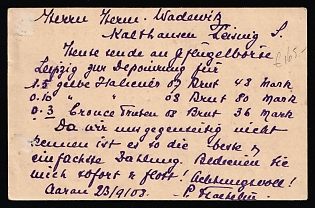 Herrn Herm. Wadewitz
Kalthausen Leisnig S.
Heute sende an Geflügelbörse
Leipzig zur Deponirung für
1.5 gelbe Italiener 03 Brut 43 Mark
0.10 " " 03 Brut 80 Mark
0.3 Bronce Truten 03 Brut 36 Mark
Da wir uns gegenseitig nicht
kennen ist es so die beste &
einfachste Zahlung. Bedienen Sie
mich sofort & flott! Achtungsvoll!
Aarau 23/9/03. P.